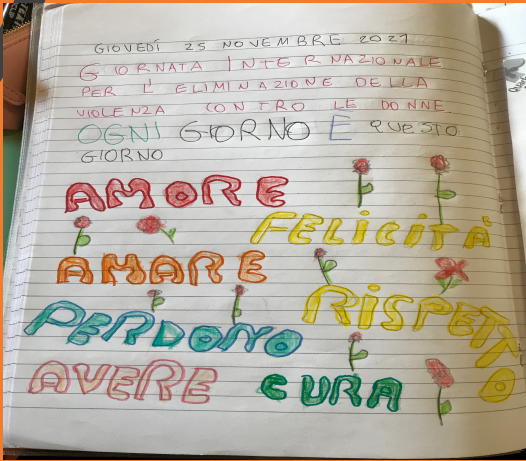 GIOVEDÍ 25 NOVEMBRE 2021
GIORNATA INTERNAZIONALE
PER L'ELIMINAZIONE DELLA
VIOLENZA CONTRO LE DONNE
OGNI GIORNO È QUESTO
GIORNO
AMORE
FELICITÀ
AMARE
RISPETTO
PERDONO
AVERE CURA